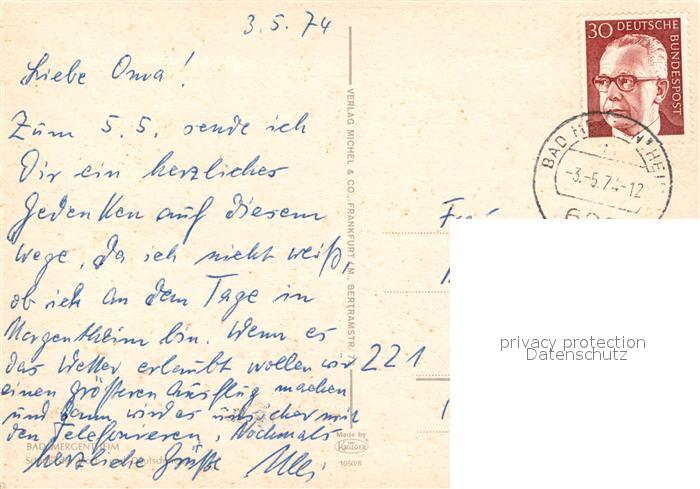 3.5.74
Liebe Oma!
Zum 5.5. sende ich
Dir ein herzliches
Gedenken auf diesem
Wege, da ich nicht weiß,
ob ich an dem Tage in
Mergentheim bin. Wenn es
das Wetter erlaubt wollen wir
einen größeren Ausflug machen
und dann wird es schwer mit
den Telefonieren. Nochmals
herzliche Grüße Uli
BAD MERGENTHEIM
Made by
Krüger
1050/8
VERLAG MICHEL & CO., FRANKFURT/M., BERTRAMSTR.
221
30 DEUTSCHE
BUNDESPOST
BAD M
-3.-5.74-12
privacy protection
Datenschutz